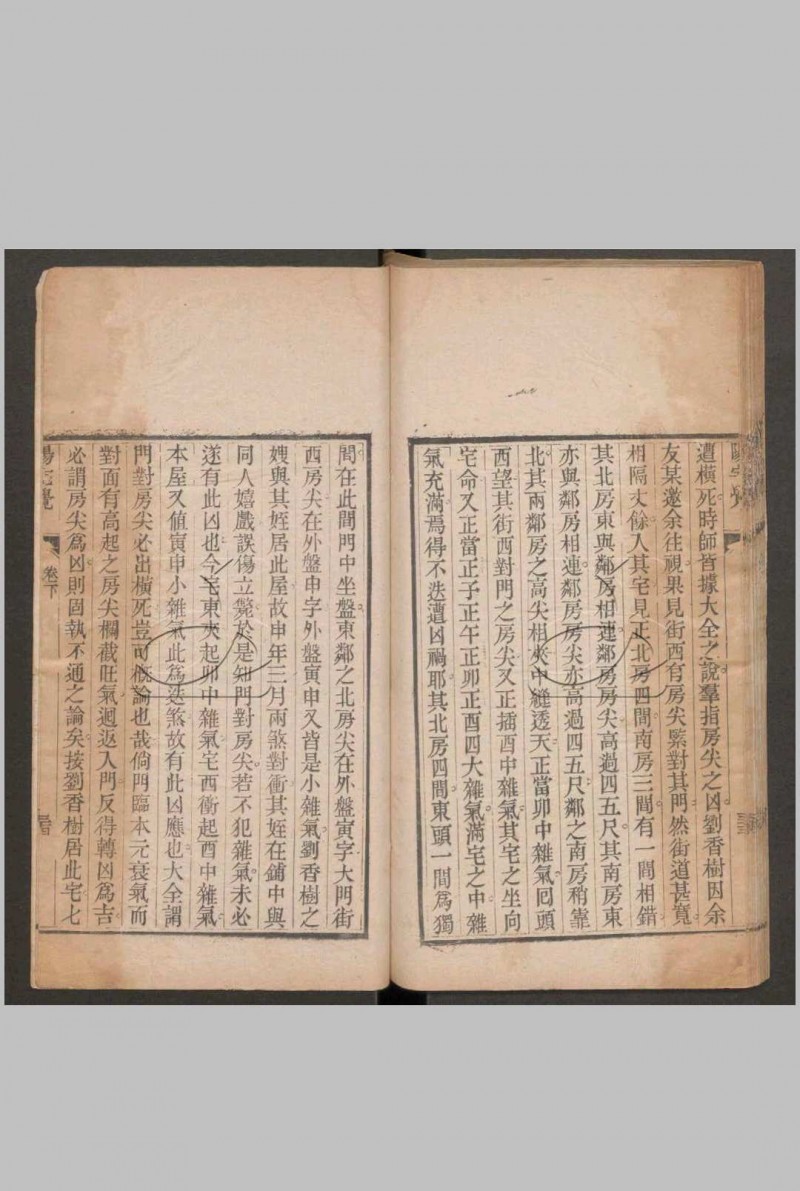 遭橫死時師皆據大全之說羣指房尖之凶劉香樹因余
友某邀余往視果見街西有房尖緊對其門然街道甚寬
相隔丈餘入其宅見正北房四間南房三間有一間相錯
其北房東與鄰房相連鄰房房尖高過四五尺其南房東
亦與鄰房相連鄰房房尖亦高過四五尺鄰之南房稍靠
北其兩鄰房之高尖相夾中縫透天正當卯中雜氣囘頭
西望其街西對門之房尖又正插酉中雜氣其宅之坐向
宅命又正當正子正午正卯正酉四大雜氣滿宅之中雜
氣充滿焉得不迭遭凶禍耶其北房四間東頭一間為獨
間在此間門中坐盤東鄰之北房尖在外盤寅字大門街
西房尖在外盤申字外盤寅申又皆是小雜氣劉香樹之
嫂與其姪居此屋故申年三月兩煞對衝其姪在鋪中與
同人嬉戲誤傷立斃於是知門對房尖若不犯雜氣未必
遂有此凶也今宅東夾起卯中雜氣宅西衝起酉中雜氣
本屋又値寅申小雜氣此為迭煞故有此凶應也大全謂
門對房尖必出橫死豈可概論也哉倘門臨本元衰氣而
對面有高起之房尖欄截旺氣迴返入門反得轉凶為吉
必謂房尖為凶則固執不通之論矣按劉香樹居此宅七
陽宅覺
卷下